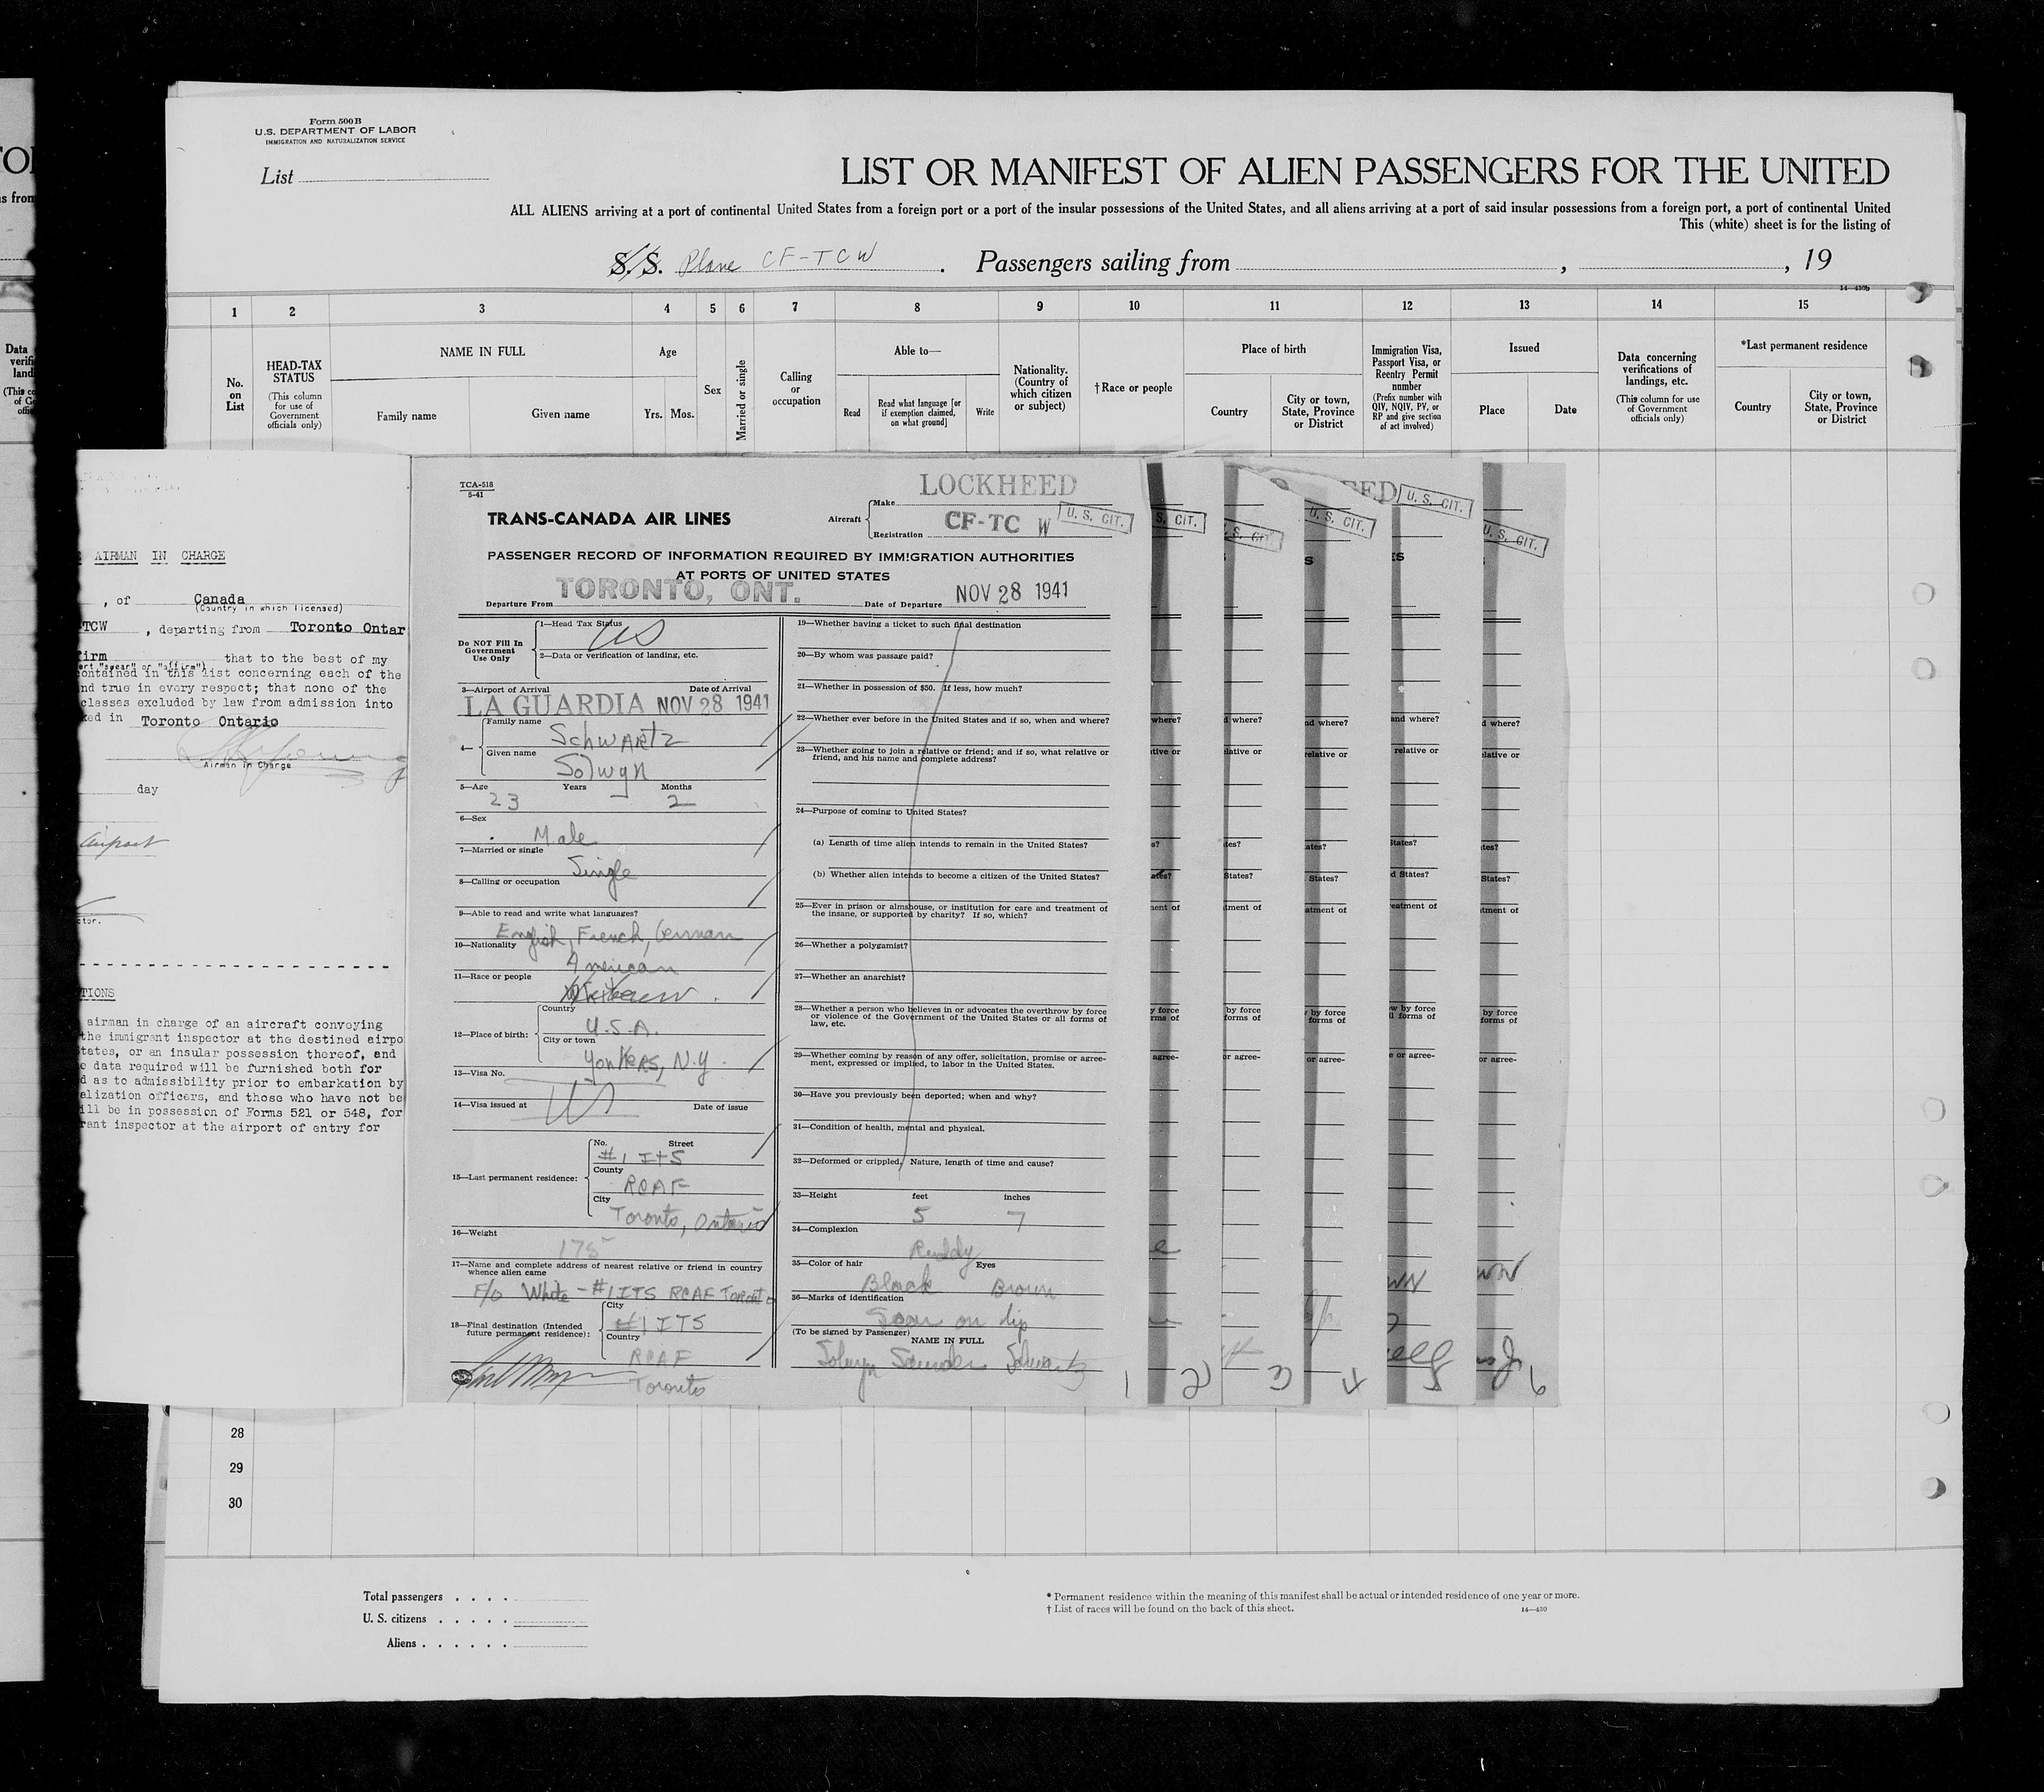 Form 500 B
U.S. DEPARTMENT OF LABOR
IMMIGRATION AND NATURALIZATION SERVICE
List
LIST OR MANIFEST OF ALIEN PASSENGERS FOR THE UNITED
ALL ALIENS arriving at a port of continental United States from a foreign port or a port of the insular possessions of the United States, and all aliens arriving at a port of said insular possessions from a foreign port, a port of continental United
This (white) sheet is for the listing of
S.S. Plane CF-TCW . Passengers sailing from , , 19
1 2 3 4 5 6 7 8 9 10 11 12 13 14 15
No. on List
HEAD-TAX STATUS
(This column for use of Government officials only)
NAME IN FULL
Family name Given name
Age
Yrs. Mos.
Sex
Married or single
Calling or occupation
Able to—
Read
Read what language [or if exemption claimed, on what ground]
Write
Nationality. (Country of which citizen or subject)
†Race or people
Place of birth
Country
City or town, State, Province or District
Immigration Visa, Passport Visa, or Reentry Permit number
(Prefix number with QIV, NQIV, PV, or RP and give section of act involved)
Issued
Place Date
Data concerning verifications of landings, etc.
(This column for use of Government officials only)
*Last permanent residence
Country
City or town, State, Province or District
AIRMAN IN CHARGE
, of Canada
(Country in which licensed)
TCW , departing from Toronto Ontar
firm that to the best of my
ontained in this list concerning each of the
nd true in every respect; that none of the
classes excluded by law from admission into
ked in Toronto Ontario
Airman in Charge
day
Airport
ctor.
TIONS
airman in charge of an aircraft conveying
the immigrant inspector at the destined airpo
tates, or an insular possession thereof, and
e data required will be furnished both for
d as to admissibility prior to embarkation by
alization officers, and those who have not be
ill be in possession of Forms 521 or 548, for
rant inspector at the airport of entry for
TCA-518
5-41
TRANS-CANADA AIR LINES
Aircraft
Make LOCKHEED
Registration CF-TC W
U. S. CIT.
PASSENGER RECORD OF INFORMATION REQUIRED BY IMMIGRATION AUTHORITIES
AT PORTS OF UNITED STATES
Departure From TORONTO, ONT. Date of Departure NOV 28 1941
Do NOT Fill In Government Use Only
1—Head Tax Status US
2—Data or verification of landing, etc.
3—Airport of Arrival Date of Arrival
LA GUARDIA NOV 28 1941
4— Family name Schwartz
Given name Solwyn
5—Age 23 Years — Months 2
6—Sex Male
7—Married or single Single
8—Calling or occupation
9—Able to read and write what languages?
English, French, German
10—Nationality American
11—Race or people
12—Place of birth: Country U.S.A.
City or town Yonkers, N.Y.
13—Visa No.
14—Visa issued at US Date of issue
15—Last permanent residence: No. Street #1 ITS
County RCAF
City Toronto, Ontario
16—Weight 175
17—Name and complete address of nearest relative or friend in country whence alien came
F/O White - #1 ITS RCAF Toronto
18—Final destination (Intended future permanent residence): City #1 ITS
Country RCAF
Toronto
19—Whether having a ticket to such final destination
20—By whom was passage paid?
21—Whether in possession of $50. If less, how much?
22—Whether ever before in the United States and if so, when and where?
23—Whether going to join a relative or friend; and if so, what relative or
friend, and his name and complete address?
24—Purpose of coming to United States?
(a) Length of time alien intends to remain in the United States?
(b) Whether alien intends to become a citizen of the United States?
25—Ever in prison or almshouse, or institution for care and treatment of
the insane, or supported by charity? If so, which?
26—Whether a polygamist?
27—Whether an anarchist?
28—Whether a person who believes in or advocates the overthrow by force
or violence of the Government of the United States or all forms of
law, etc.
29—Whether coming by reason of any offer, solicitation, promise or agree-
ment, expressed or implied, to labor in the United States.
30—Have you previously been deported; when and why?
31—Condition of health, mental and physical.
32—Deformed or crippled, Nature, length of time and cause?
33—Height 5 feet 7 inches
34—Complexion Ruddy
35—Color of hair Black Eyes Brown
36—Marks of identification Scar on lip
(To be signed by Passenger) NAME IN FULL
28
29
30
Total passengers . . . .
U. S. citizens . . . . .
Aliens . . . . . .
* Permanent residence within the meaning of this manifest shall be actual or intended residence of one year or more.
† List of races will be found on the back of this sheet.
14—430